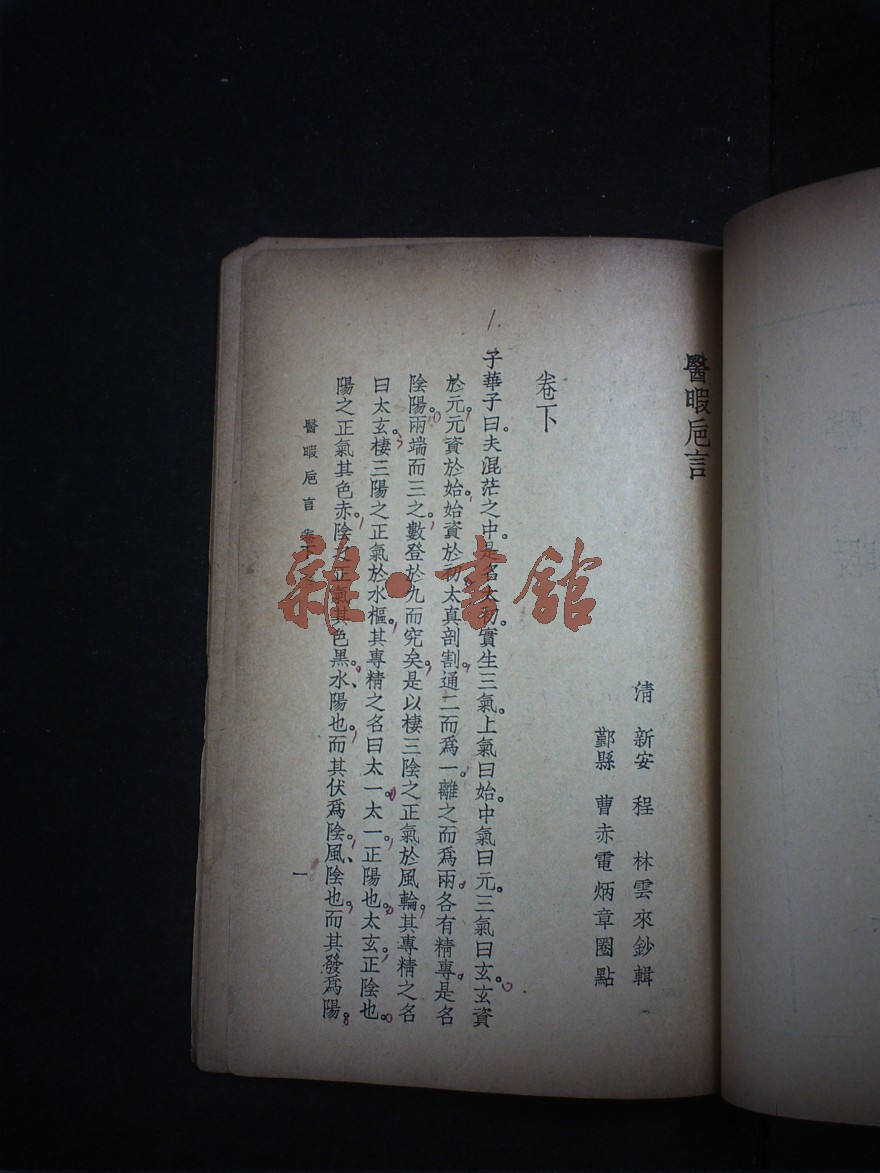 醫暇卮言
清 新安 程 林雲來鈔輯
鄞縣 曹赤電炳章圈點
卷下
子華子曰。夫混茫之中。是名太初。實生三氣。上氣曰始。中氣曰元。三氣曰玄。玄資
於元。元資於始。始資於初。太真剖割。通二而為一。離之而為兩。各有精專。是名
陰陽。兩端而三之。數登於九而究矣。是以棲三陰之正氣於風輪。其專精之名
曰太玄。棲三陽之正氣於水樞。其專精之名曰太一。太一。正陽也。太玄。正陰也。
陽之正氣其色赤。陰之正氣其色黑。水、陽也。而其伏爲陰。風、陰也。而其發爲陽。
醫暇卮言 卷下
一
雜·書館